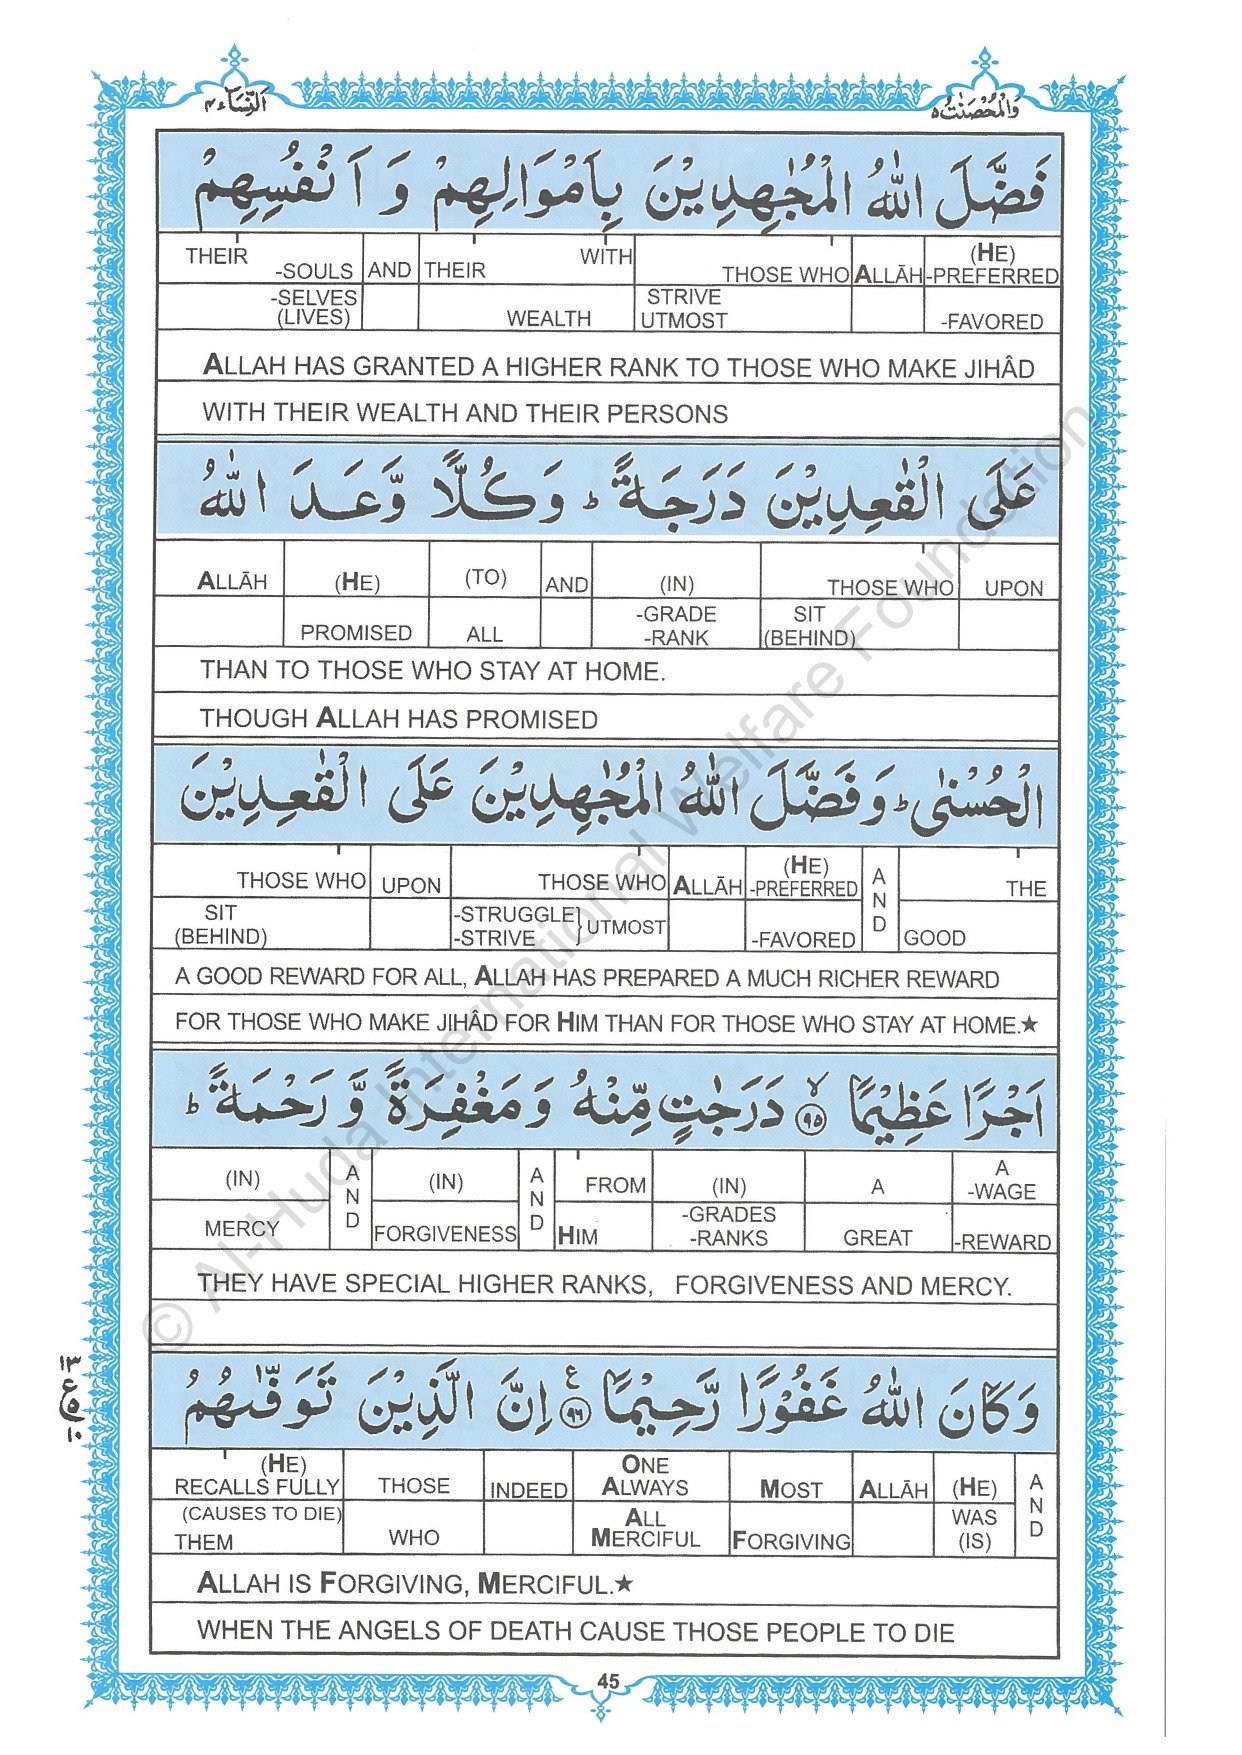 وَالْمُحْصَنٰتُ ٥
اَلنِّسَآء ٤
فَضَّلَ اللّٰهُ الْمُجٰهِدِيْنَ بِاَمْوَالِهِمْ وَ اَنْفُسِهِمْ
THEIR WITH (HE)
-SOULS AND THEIR THOSE WHO ALLĀH -PREFERRED
-SELVES STRIVE
(LIVES) WEALTH UTMOST -FAVORED
ALLAH HAS GRANTED A HIGHER RANK TO THOSE WHO MAKE JIHÂD
WITH THEIR WEALTH AND THEIR PERSONS
عَلَى الْقٰعِدِيْنَ دَرَجَةً ؕ وَ كُلًّا وَّعَدَ اللّٰهُ
ALLĀH (HE) (TO) AND (IN) THOSE WHO UPON
-GRADE SIT
PROMISED ALL -RANK (BEHIND)
THAN TO THOSE WHO STAY AT HOME.
THOUGH ALLAH HAS PROMISED
الْحُسْنٰى ؕ وَ فَضَّلَ اللّٰهُ الْمُجٰهِدِيْنَ عَلَى الْقٰعِدِيْنَ
(HE)
THOSE WHO UPON THOSE WHO ALLĀH -PREFERRED AND THE
SIT -STRUGGLE} UTMOST
(BEHIND) -STRIVE -FAVORED GOOD
A GOOD REWARD FOR ALL, ALLAH HAS PREPARED A MUCH RICHER REWARD
FOR THOSE WHO MAKE JIHÂD FOR HIM THAN FOR THOSE WHO STAY AT HOME.★
اَجْرًا عَظِيْمًا ۙ ٩٥ دَرَجٰتٍ مِّنْهُ وَ مَغْفِرَةً وَّ رَحْمَةً ؕ
A
(IN) AND (IN) AND FROM (IN) A -WAGE
-GRADES
MERCY FORGIVENESS HIM -RANKS GREAT -REWARD
THEY HAVE SPECIAL HIGHER RANKS, FORGIVENESS AND MERCY.
وَ كَانَ اللّٰهُ غَفُوْرًا رَّحِيْمًا ع ٩٦ اِنَّ الَّذِيْنَ تَوَفّٰىهُمُ
١٣
ع
١٠
(HE) ONE
RECALLS FULLY THOSE INDEED ALWAYS MOST ALLĀH (HE) AND
(CAUSES TO DIE) ALL WAS
THEM WHO MERCIFUL FORGIVING (IS)
ALLAH IS FORGIVING, MERCIFUL.★
WHEN THE ANGELS OF DEATH CAUSE THOSE PEOPLE TO DIE
45
© Al-Huda International Welfare Foundation